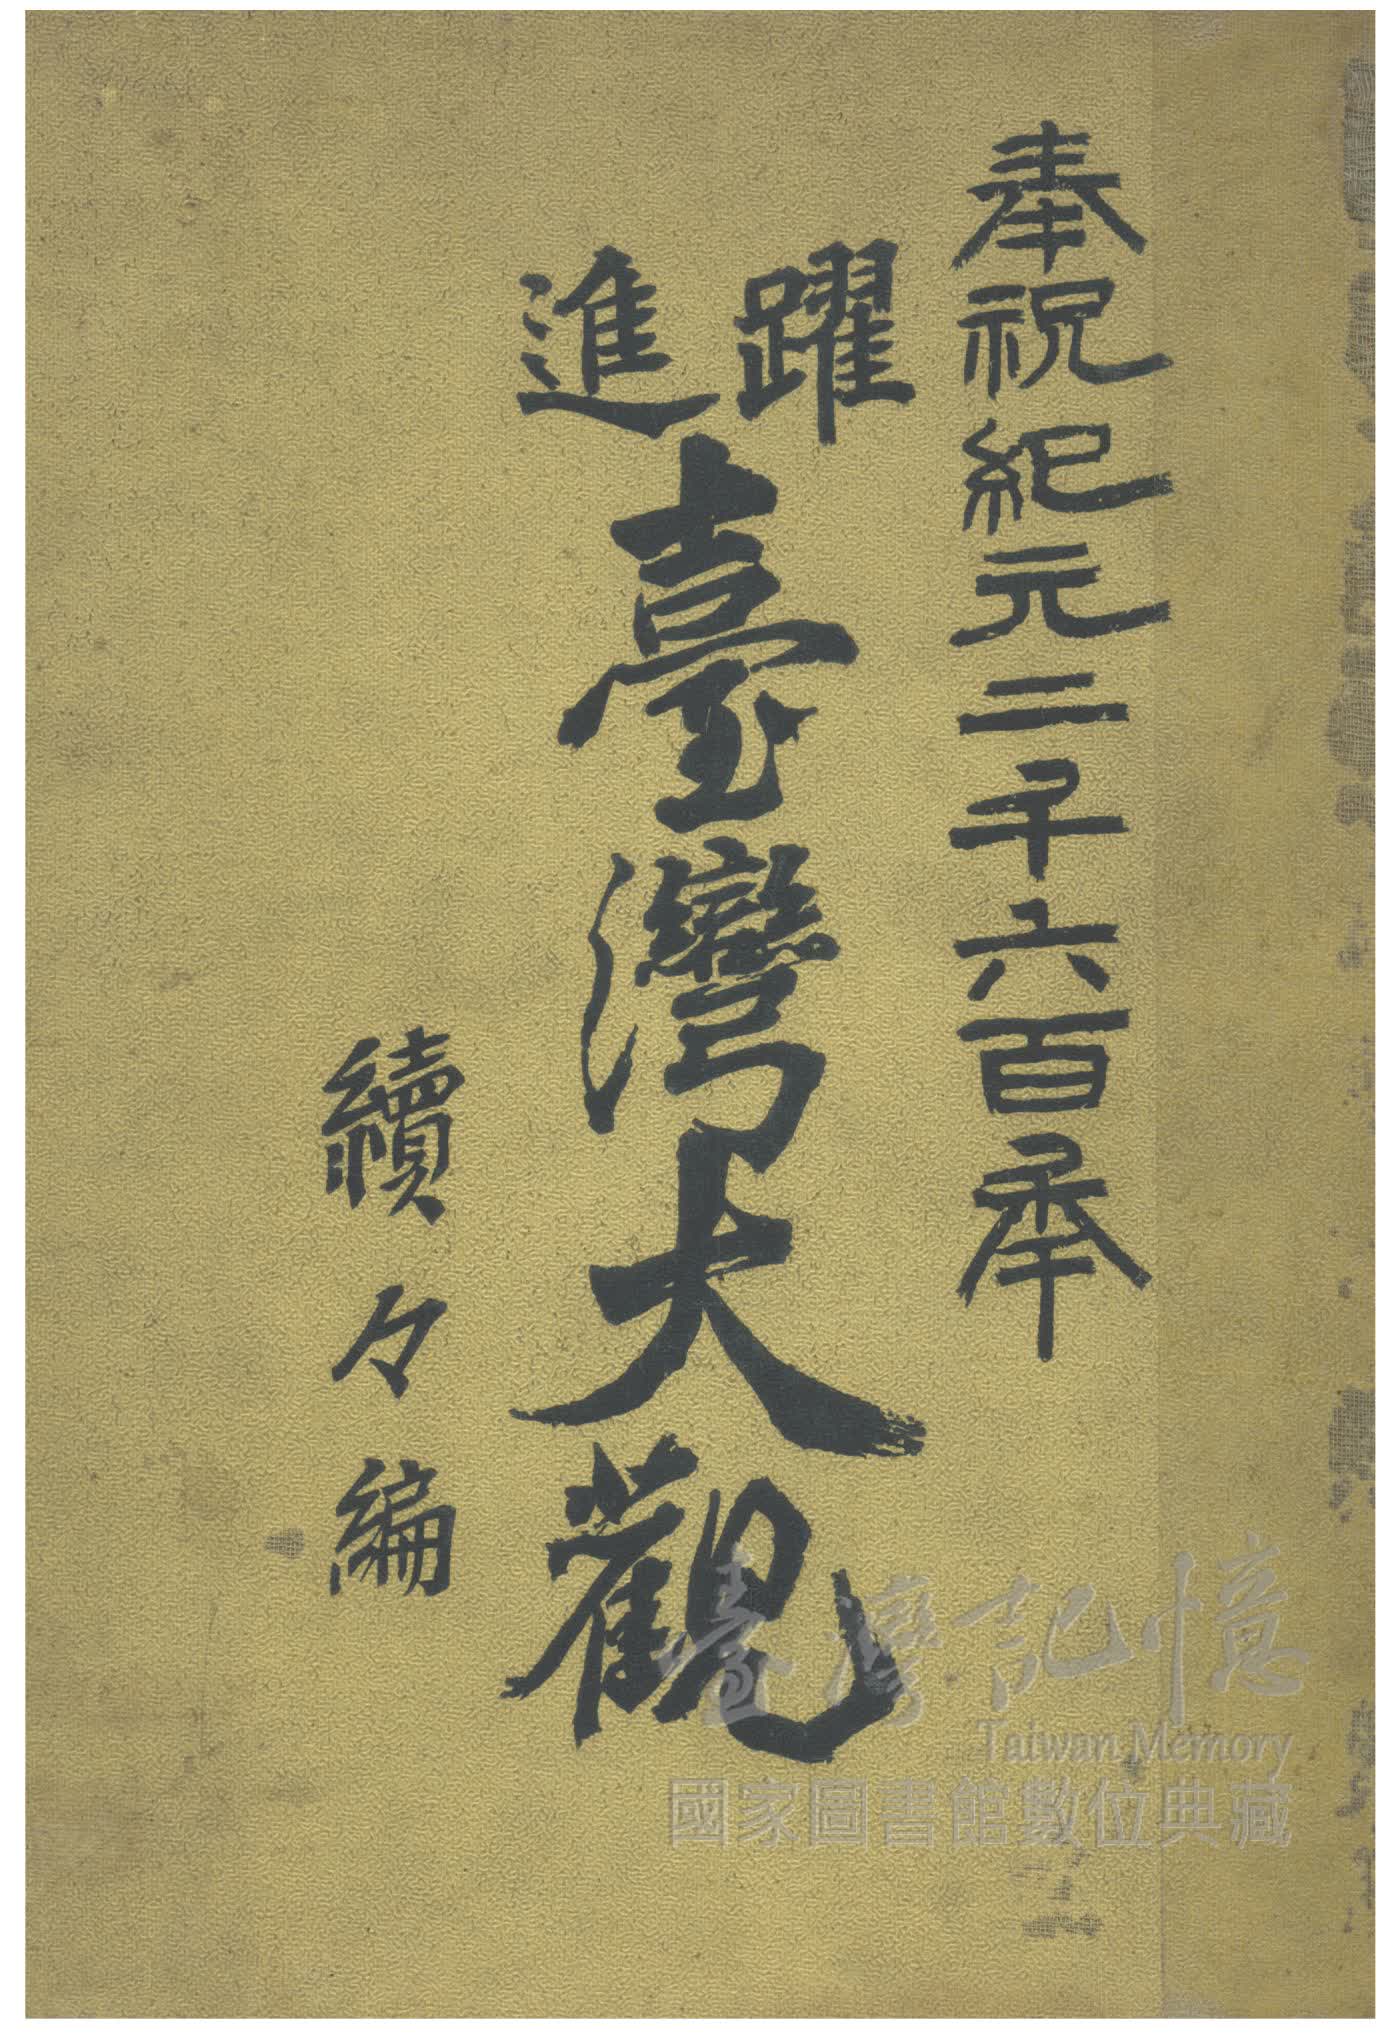 奉祝紀元二千六百年
躍進
臺灣大觀
續々編
臺灣記憶
Taiwan Memory
國家圖書館數位典藏